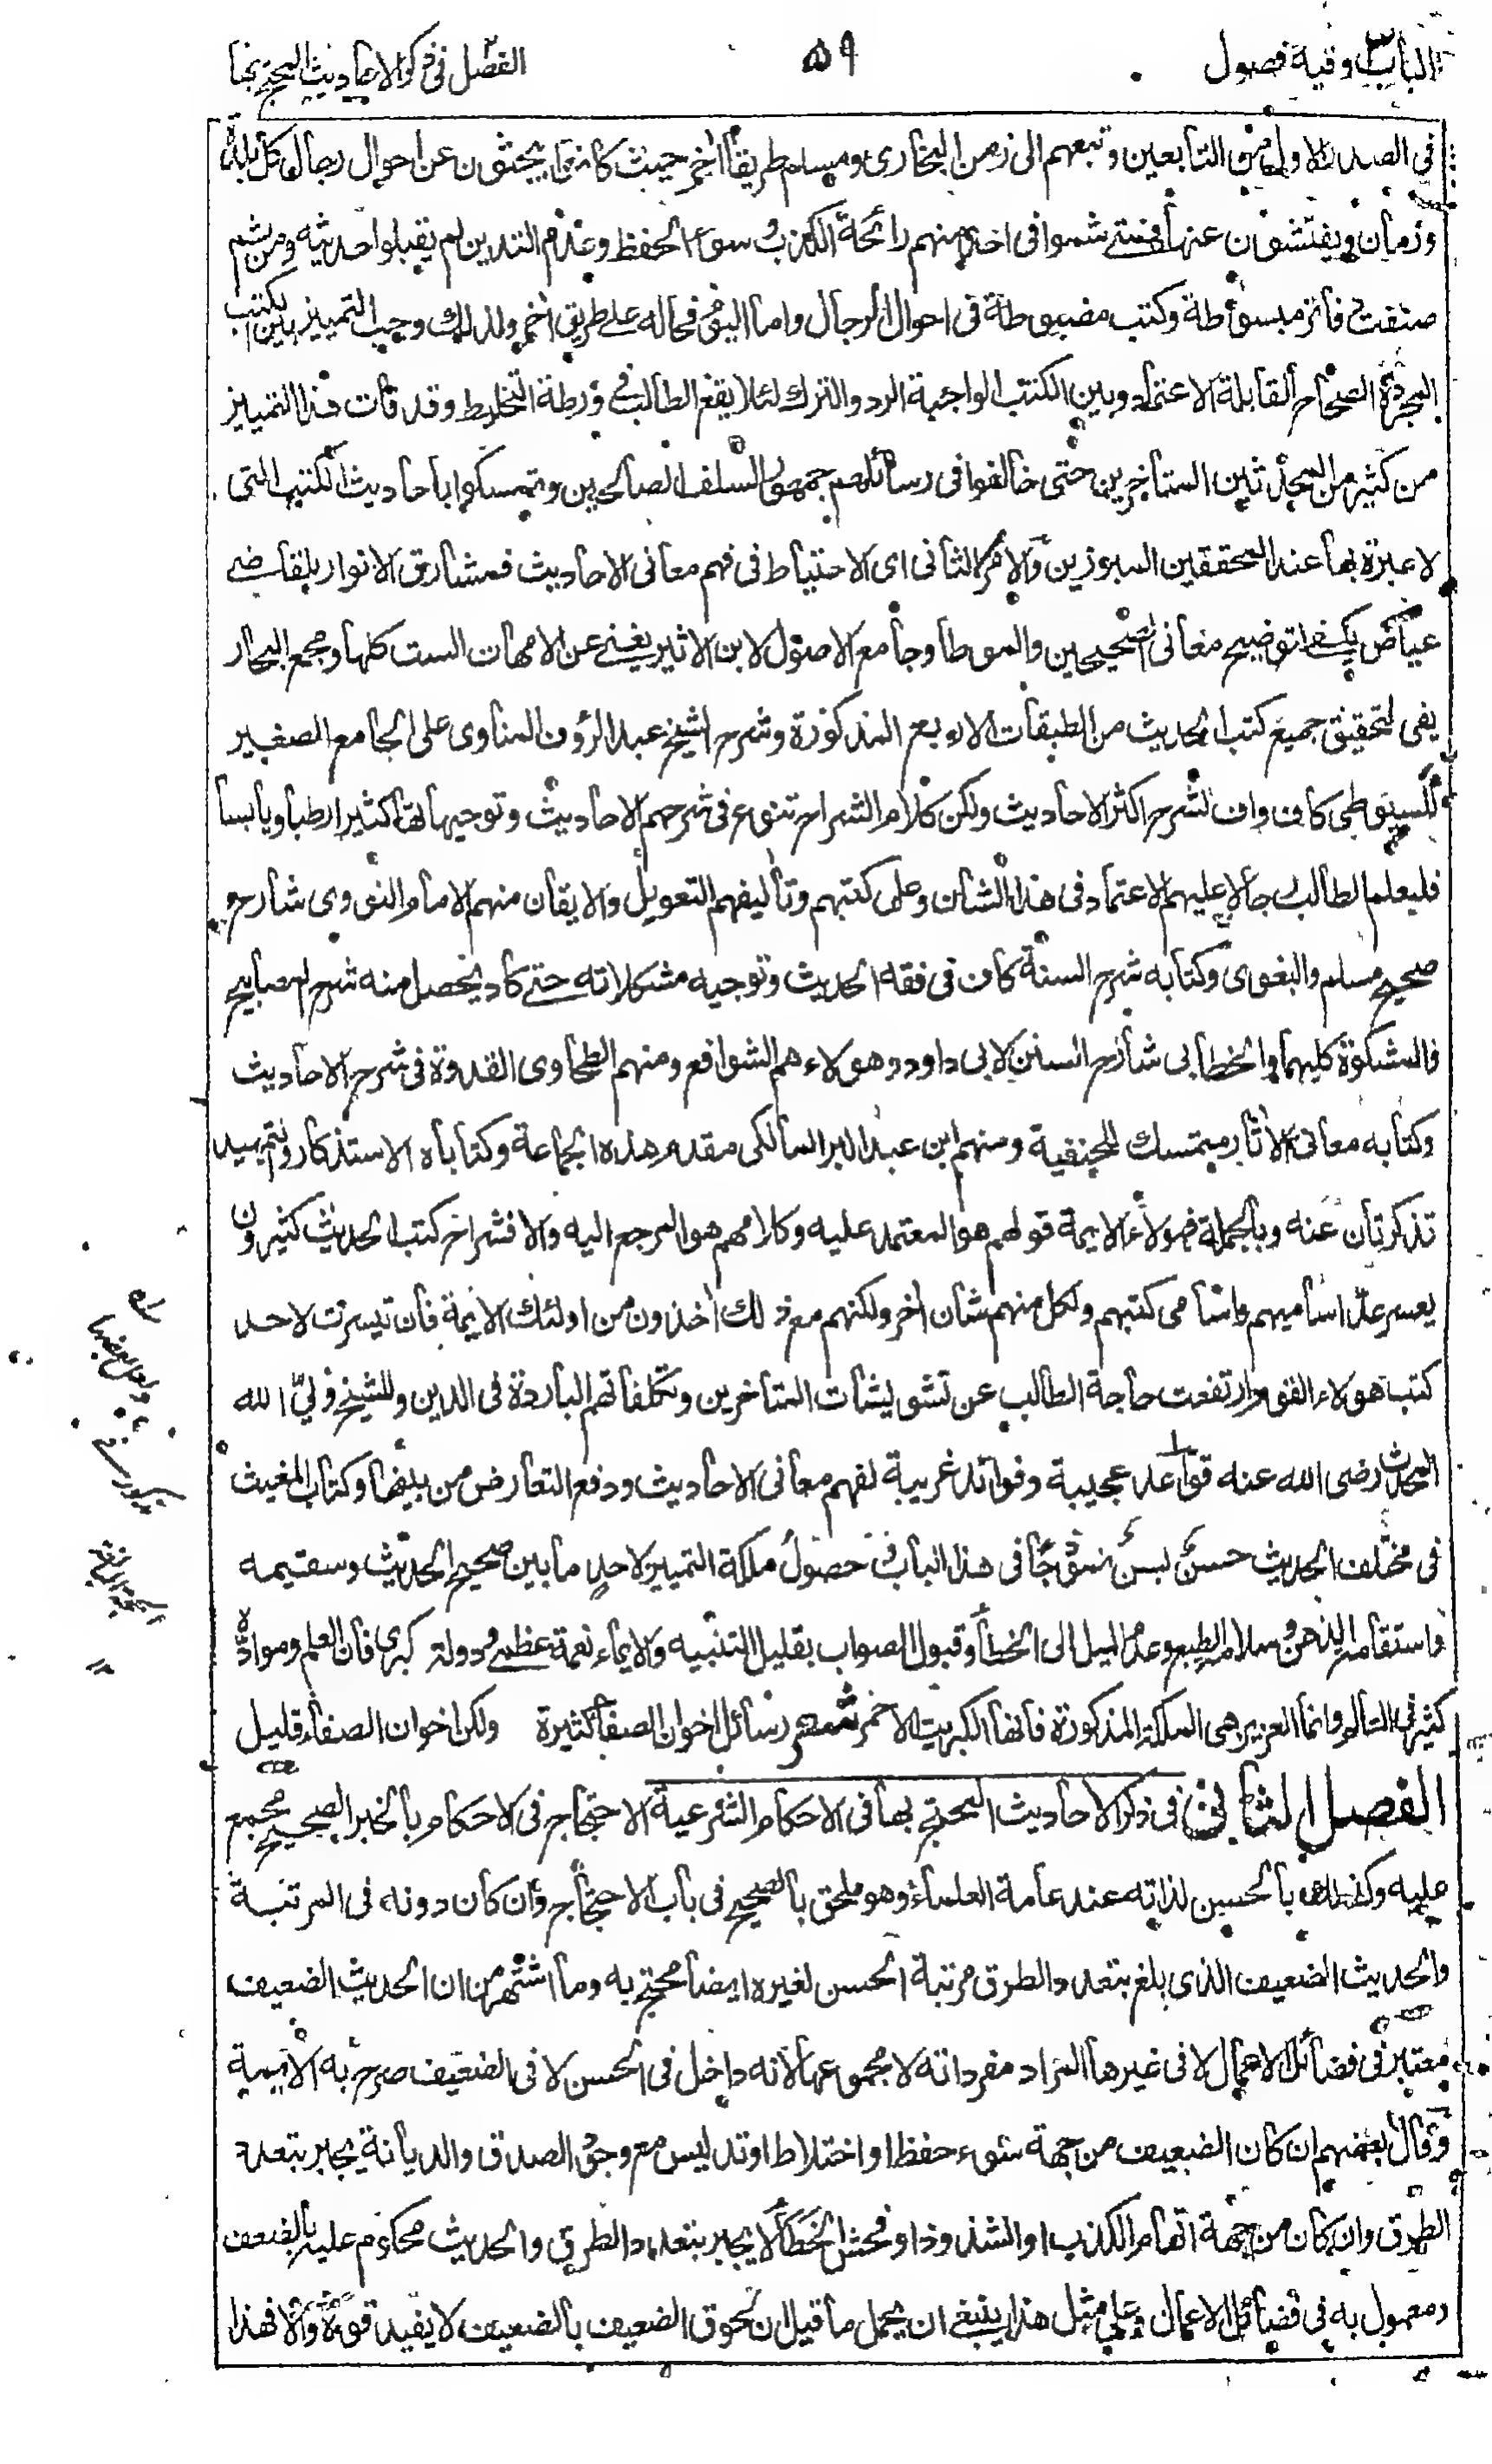 الباب ٣ وفيه فصول
٥٩
الفصل ٢ في ذكر الاحاديث المحتج بها
في الصدر الاول من التابعين وتبعهم الى زمن البخارى ومسلم طريقا اخر حيث كانوا يبحثون عن احوال رجال كل بلدة
وزمان ويفتشون عنها فمتى شموا في احد منهم رائحة الكذب وسوء الحفظ وعدم التدين لم يقبلوا حديثه ومن ثم
صنفت دفاتر مبسوطة وكتب مضبوطة في احوال الرجال واما اليوم فحاله على طريق اخر ولذلك وجب التمييز بين الكتب
المجردة الصحاح القابلة الاعتماد وبين الكتب الواجبة الرد والترك لئلا يقع الطالب في ورطة التخليط وقد فات هذا التمييز
من كثير من المحدثين المتأخرين حتى خالفوا في رسائلهم جمهور السلف الصالحين وتمسكوا باحاديث الكتب التي
لا عبرة بها عند المحققين المبرزين والامر الثاني اى الاحتياط في فهم معاني الاحاديث فمشارق الانوار للقاضي
عياض يكفي لتوضيح معاني الصحيحين والموطا وجامع الاصول لابن الاثير يغني عن الامهات الست كلها ومجمع البحار
يفى لتحقيق جميع كتب الحديث من الطبقات الاربع المذكورة وشرح الشيخ عبد الرؤف المناوى على الجامع الصغير
للسيوطي كاف واف لشرح اكثر الاحاديث ولكن كلام الشراح تنوع في شرحهم الاحاديث وتوجيهاتها كثيرا رطبا ويابسا
فليعلم الطالب رجالا عليهم الاعتماد في هذا الشان وعلى كتبهم وتأليفهم التعويل والايقان منهم الامام النووى شارح
صحيح مسلم والبغوى وكتابه شرح السنة كاف في فقه الحديث وتوجيه مشكلاته حتى كاد يحصل منه شرح المصابيح
والمشكوة كليهما والخطابي شارح السنن لابي داود وهولاء هم الشوافع ومنهم الطحاوى القدوة في شرح الاحاديث
وكتابه معاني الاثار متمسك للحنفية ومنهم ابن عبد البر المالكي مقدم هذه الجماعة وكتاباه الاستذكار والتمهيد
تذكرتان عنه وبالجملة هولاء الايمة قولهم هو المعتمد عليه وكلامهم هو المرجع اليه والا فشراح كتب الحديث كثيرون
يعسر عد اساميهم واسامى كتبهم ولكل منهم شان اخر ولكنهم مع ذلك اخذون من اولئك الايمة فان تيسرت لاحد
كتب هولاء القوم ارتفعت حاجة الطالب عن تشويشات المتاخرين وتكلفاتهم الباردة في الدين وللشيخ ولي الله
المحدث رضى الله عنه قواعد عجيبة وفوائد غريبة لفهم معاني الاحاديث ودفع التعارض من بينها وكتاب المغيث
في مختلف الحديث حسن بسن نموذجا في هذا الباب حصول ملكة التمييز لاحد ما بين صحيح الحديث وسقيمه
واستقامة الذهن وسلامة الطبع وعدم الميل الى الخطأ وقبول الصواب بقليل التنبيه والايماء نعمة عظمى ودولة كبرى فان العلم ومواده
كثير في العالم وانما العزيز هى الملكة المذكورة فانها الكبريت الاحمر شعر رسائل اخوان الصفا كثيرة ولكن اخوان الصفاء قليل
الفصل الثاني في ذكر الاحاديث المحتج بها في الاحكام الشرعية الاحتجاج في الاحكام بالخبر الصحيح مجمع
عليه وكذلك بالحسن لذاته عند عامة العلماء وهو ملحق بالصحيح في باب الاحتجاج وان كان دونه في المرتبة
والحديث الضعيف الذى بلغ بتعدد الطرق مرتبة الحسن لغيره ايضا محتج به وما اشتهر من ان الحديث الضعيف
معتبر في فضائل الاعمال لا في غيرها المراد مفرداته لا مجموعها لانه داخل في الحسن لا في الضعيف صرح به الايمة
وقال بعضهم ان كان الضعيف من جهة سوء حفظ او اختلاط او تدليس مع وجود الصدق والديانة يجبر بتعدد
الطرق وان كان من جهة اتهام الكذب او الشذوذ او فحش الخطأ لا يجبر بتعدد الطرق والحديث محكوم عليه بالضعف
ومعمول به في فضائل الاعمال وعلى مثل هذا ينبغي ان يحمل ما قيل ان لحوق الضعيف بالضعيف لا يفيد قوة والا فهذا